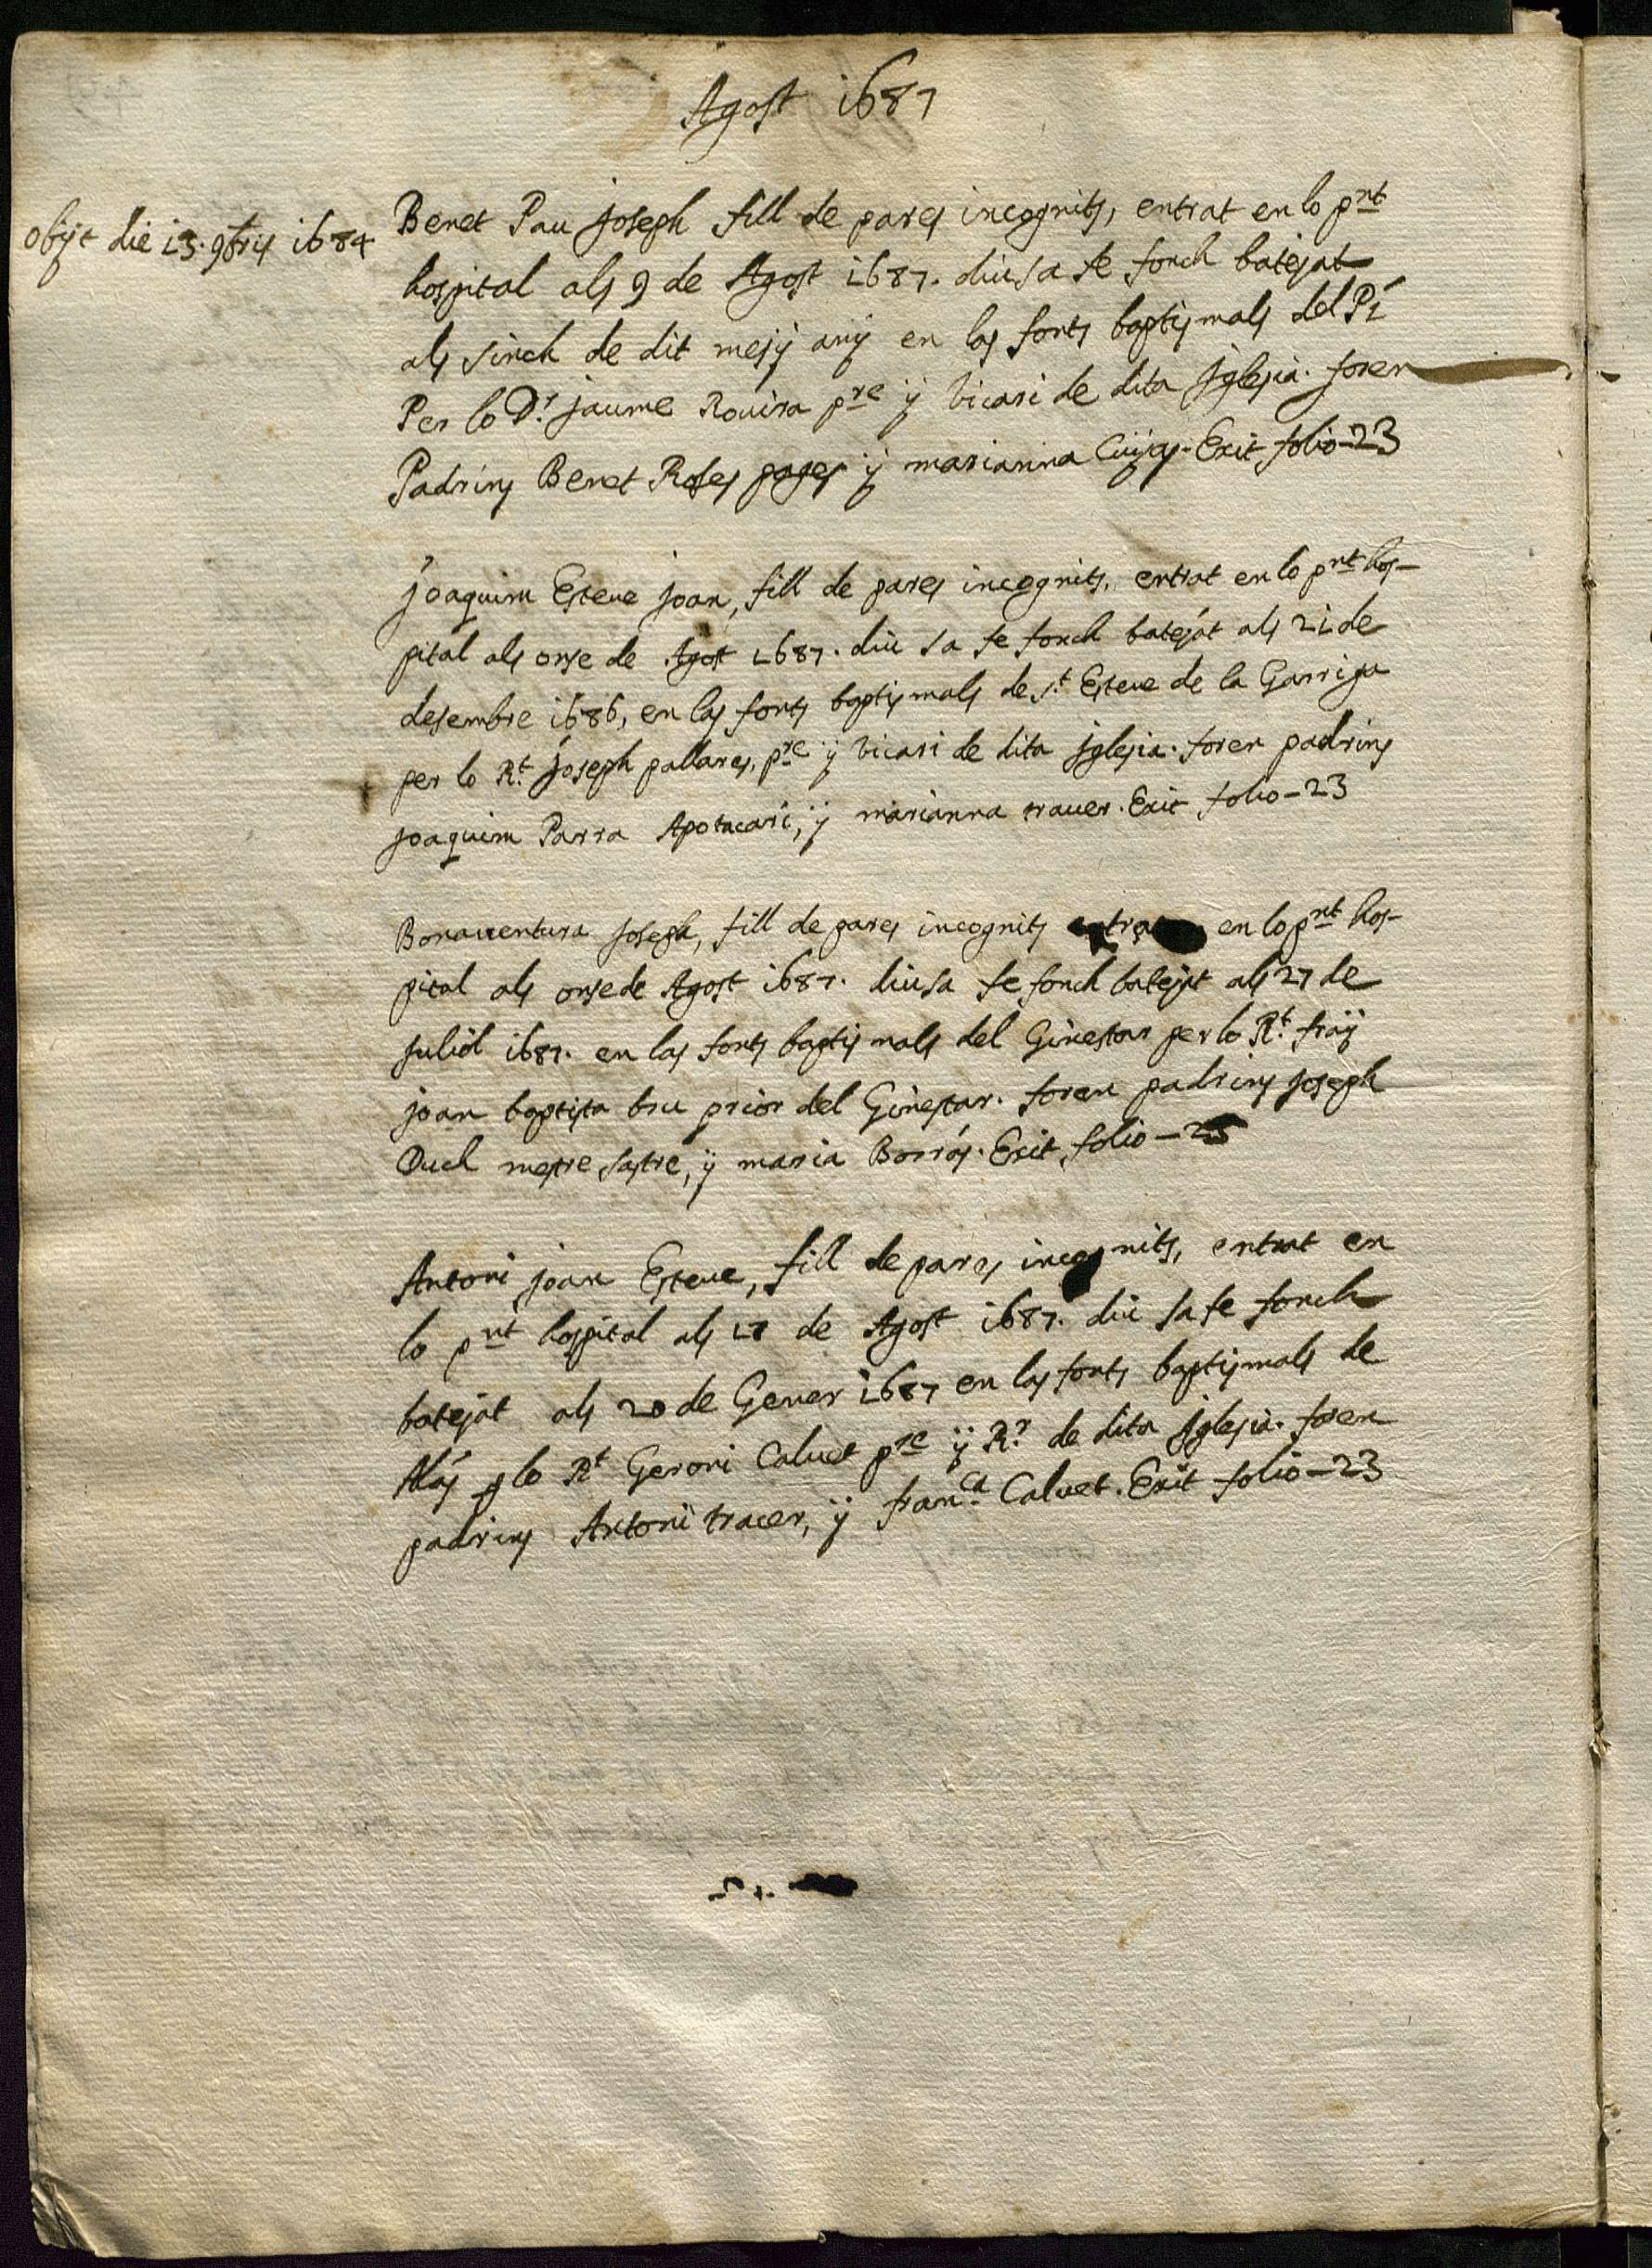 Agost 1687
Obijt die 13. 9bris 1684
Benet Pau Joseph fill de pares incognits, entrat en lo pnt
hospital als 9 de Agost 1687. diu sa fe fonch batejat
als sinch de dit mes ÿ anÿ en las fonts baptismals del Pí
Per lo Dr. Jaume Rovira pre ÿ vicari de dita Iglesia. foren
Padrins Benet Roses pages ÿ marianna Cuÿas. Exit folio-23
Joaquim Esteve Joan, fill de pares incognits, entrat en lo pnt hos-
pital als onse de Agost 1687. diu sa fe fonch batejat als 21 de
desembre 1686, en las fonts baptismals de st. Esteve de la Garriga
per lo Rt. Joseph pallares, pre ÿ vicari de dita Iglesia. foren padrins
Joaquim Parra Apotacari, ÿ marianna traver. Exit folio-23
Bonaventura Joseph, fill de pares incognits en lo pnt hos-
pital als onse de Agost 1687. diu sa fe fonch batejat als 27 de
Juliol 1687. en las fonts baptismals del Ginestar per lo Rt. fraÿ
Joan baptista bru prior del Ginestar. foren padrins Joseph
Duch mestre sastre, ÿ maria Borrás. Exit folio-23
Antoni Joan Esteve, fill de pares incognits, entrat en
lo pnt hospital als de Agost 1687. diu sa fe fonch
batejat als 20 de Gener 1687 en las fonts baptismals de
Alás p lo Rt Geroni Calvet pre ÿ Rr. de dita Iglesia. foren
padrins Antoni tracer, ÿ franca. Calvet. Exit folio-23